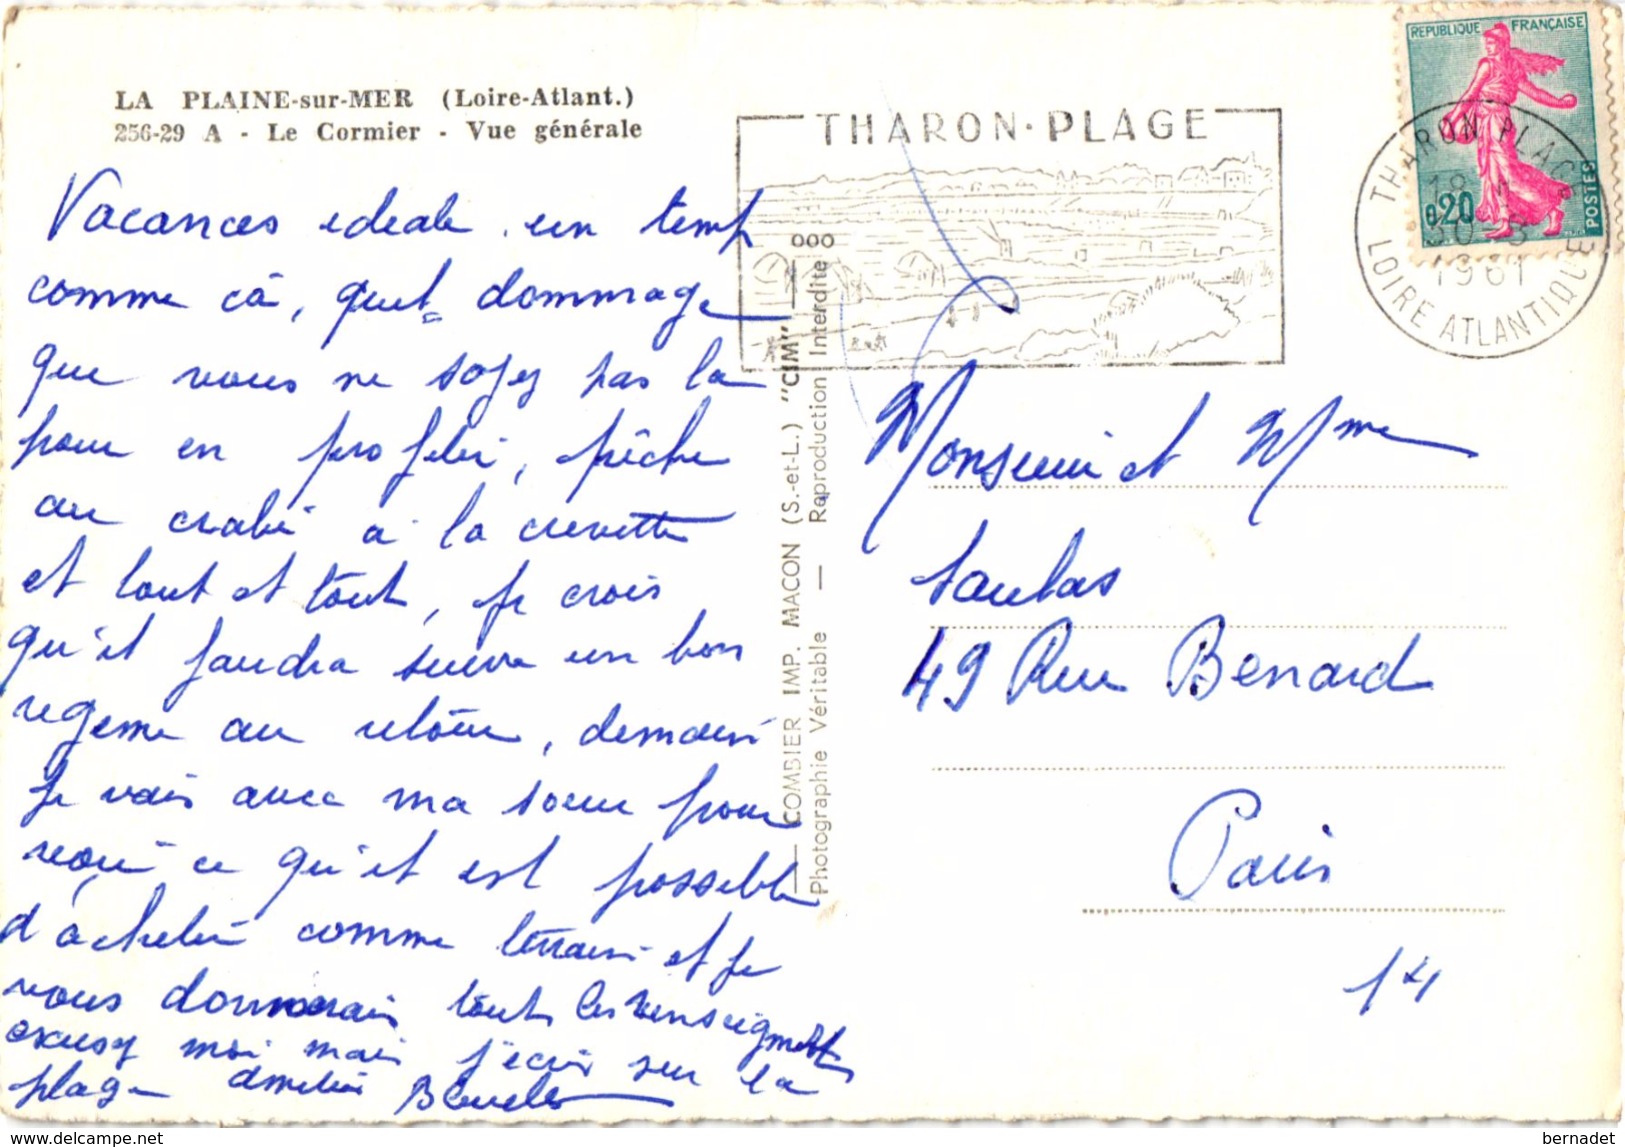 LA PLAINE-sur-MER (Loire-Atlant.)
256-29 A - Le Cormier - Vue générale
Vacances ideale un temp
comme ça, quel dommage
que vous ne soyez pas la
pour en profiter, pêche
au crabe a la crevette
et tout et tout, je crois
qu'il faudra suivre un bon
regeme au retour, demain
je vais avec ma soeur pour
voir ce qu'il est possible
d'acheter comme terrain et je
vous donnerais tout les renseignements
excusez moi mais j'ecris sur la
plage
THARON-PLAGE
REPUBLIQUE FRANÇAISE
0,20
POSTES
THARON PLAGE
1961
LOIRE ATLANTIQUE
COMBIER IMP. MACON (S.-et-L.) "CIM"
Photographie Véritable — Reproduction Interdite
Monsieur et Mme
49 Rue Benard
Paris
14
www.delcampe.net
bernadet